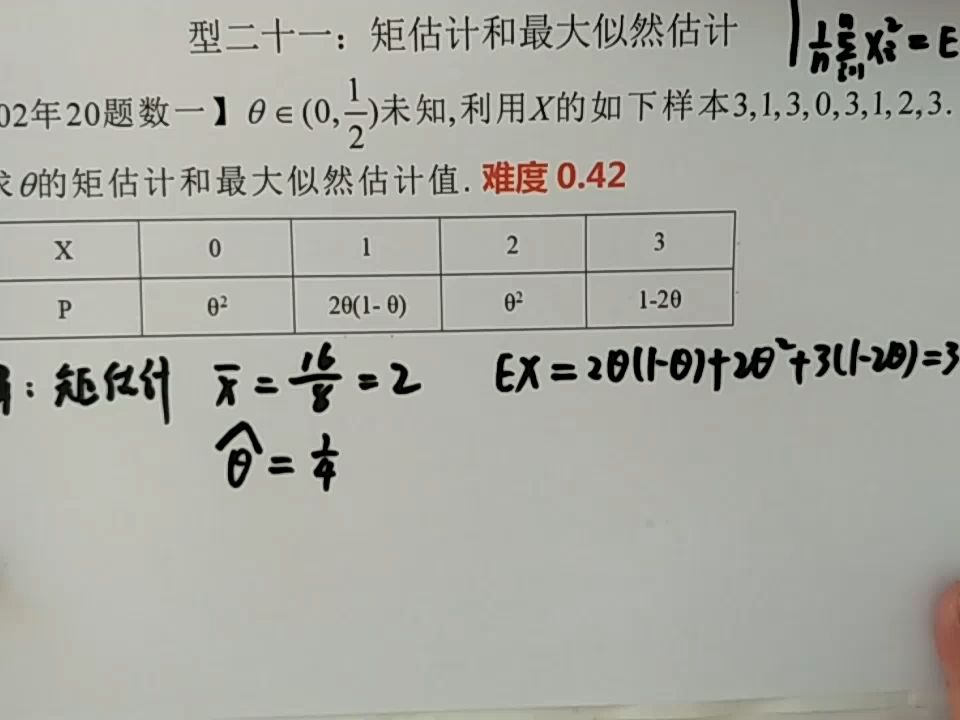 型二十一：矩估计和最大似然估计
1/n ∑i=1 n Xi² = E
02年20题数一】θ∈(0,1/2)未知,利用X的如下样本3,1,3,0,3,1,2,3.
求θ的矩估计和最大似然估计值. 难度 0.42
X 0 1 2 3
P θ² 2θ(1- θ) θ² 1-2θ
: 矩估计 x̄ = 16/8 = 2 EX = 2θ(1-θ)+2θ²+3(1-2θ)=3
θ̂ = 1/4